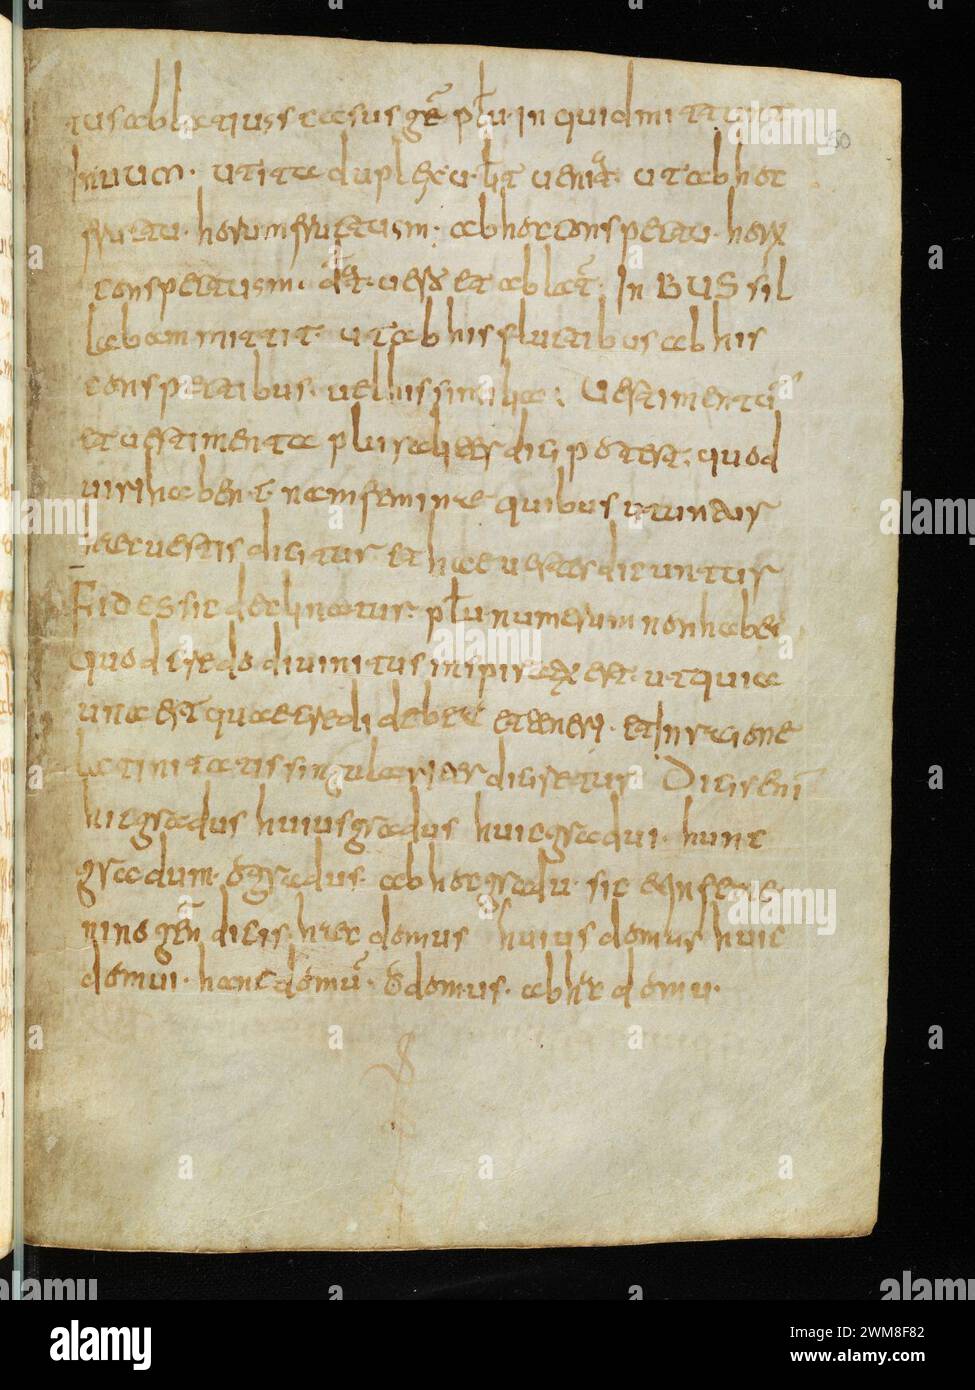 tus ablatiuus casus gē plu in quid mittunt
In uum ut ita duplex u sit uenit ut ab hoc
fructu horum fructuum ab hoc conspectu horum
conspectuum dat uero et ablat In BUS sil
labam mittit ut ab his fluctibus ab his
conspectibus uel his similia Uestimentū
et uestimenta pluraliter dici potest quod
uiri habent nam femine quibus utuntur
hec uestis dicitur et hae uestes dicuntur
Fides sic declinatur plu numerum non habet
quod credo diuinitus inspiratum est ut quia
una est quae credi debet et teneri et In ratione
latinitatis singulariter diceretur Dicis enī
hic gradus huius gradus huic gradui hunc
gradum o gradus ab hoc gradu sic et In feme
nino gen dicis haec domus huius domus huic
domui hanc domū o domus ab hac domu
50
alamy
Image ID: 2WM8F82
www.alamy.com